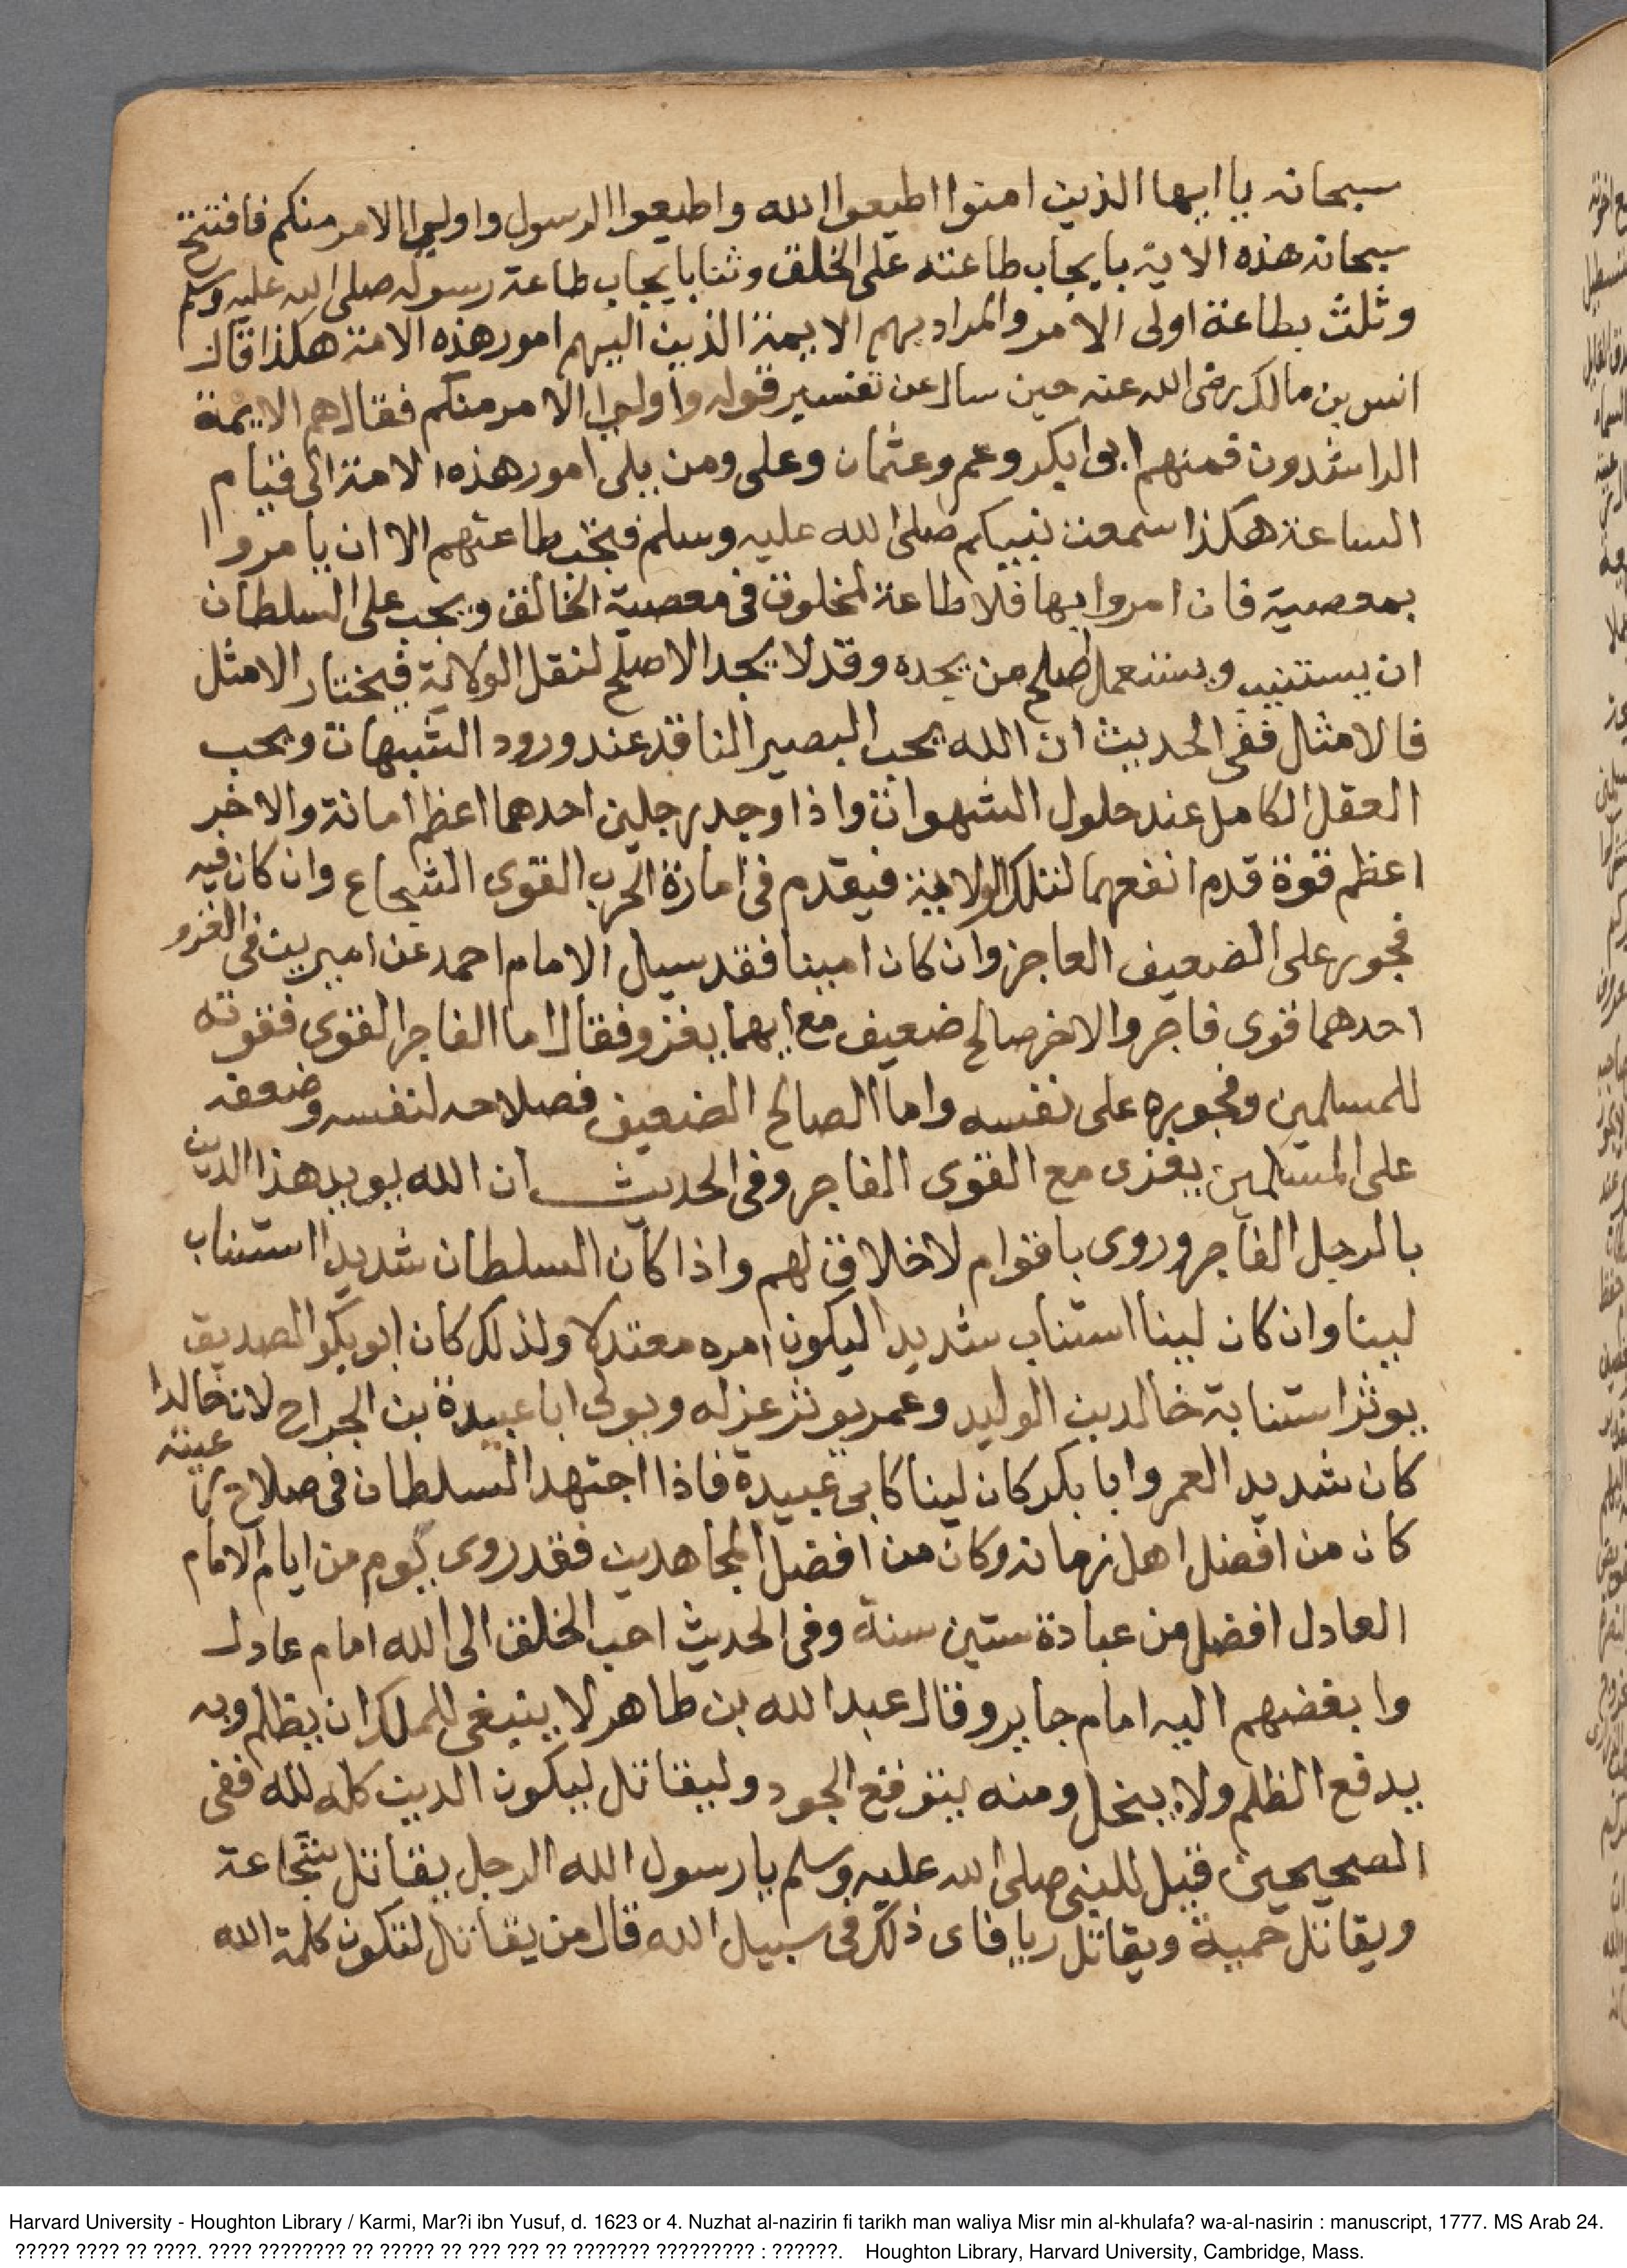 سبحانه يا ايها الذين امنوا اطيعوا الله واطيعوا الرسول واولي الامر منكم فافتتح
سبحانه هذه الاية بايجاب طاعته على الخلق وثنا بايجاب طاعة رسوله صلى الله عليه وسلم
وثلث بطاعة اولى الامر والمراد بهم الايمة الذين اليهم امور هذه الامة هكذا قال
انس بن مالك رضى الله عنه حين سال عن تفسير قوله واولي الامر منكم فقال هم الايمة
الراشدون فمنهم ابوا بكر وعمر وعثمان وعلى ومن يلى امور هذه الامة الى قيام
الساعة هكذا سمعت نبيكم صلى الله عليه وسلم فيجب طاعتهم الا ان يامروا
بمعصية فان امروا بها فلا طاعة لمخلوق فى معصية الخالق ويجب على السلطان
ان يستنيب ويستعمل اصلح من يجده وقد لا يجد الاصلح لتقل الولاية فيختار الامثل
فالامثال ففى الحديث ان الله يحب البصير الناقد عند ورود الشبهات ويحب
العقل الكامل عند حلول الشهوات واذا وجد رجلين احدهما اعظم امانة والاخر
اعظم قوة قدم انفعهما لتلك الولاية فيقدم فى امارة الحرب القوى الشجاع وان كان فيه
فجور على الضعيف العاجز وان كان امينا فقد سيل الامام احمد عن اميرين فى الغزو
احدهما قوى فاجر والاخر صالح ضعيف مع ايهما يغزو فقال اما الفاجر القوى فقوته
للمسلمين وفجوره على نفسه واما الصالح الضعيف فصلاحه لنفسه وضعفه
على المسلمين يغزى مع القوى الفاجر وفى الحديث ان الله يويد هذا الدين
بالرجل الفاجر وروى باقوام لا خلاق لهم واذا كان السلطان شديدا استناب
لينا وان كان لينا استناب شديدا ليكون امره معتدلا ولذلك كان ابو بكر الصديق
يوثر استنابة خالد بن الوليد وعمر يوثر عزله ويولى ابا عبيدة بن الجراح لان خالدا
كان شديد العمر وابا بكر كان لينا كابى عبيدة فاذا اجتهد السلطان فى صلاح رعيته
كان من افضل اهل زمانه وكان من افضل المجاهدين فقد روى يوم من ايام الامام
العادل افضل من عبادة ستين سنة وفى الحديث احب الخلق الى الله امام عادل
وابغضهم اليه امام جاير وقال عبد الله بن طاهر لا ينبغى للملك ان يظلم وبه
يدفع الظلم ولا يبخل ومنه يتوقع الجود وليقاتل ليكون الدين كله لله ففى
الصحيحين قيل للنبى صلى الله عليه وسلم يا رسول الله الرجل يقاتل شجاعة
ويقاتل حمية ويقاتل ريا فاى ذلك فى سبيل الله قال من يقاتل لتكون كلمة الله
Harvard University - Houghton Library / Karmi, Mar?i ibn Yusuf, d. 1623 or 4. Nuzhat al-nazirin fi tarikh man waliya Misr min al-khulafa? wa-al-nasirin : manuscript, 1777. MS Arab 24.
????? ???? ?? ????. ???? ???????? ?? ????? ?? ??? ??? ?? ??????? ????????? : ??????. Houghton Library, Harvard University, Cambridge, Mass.